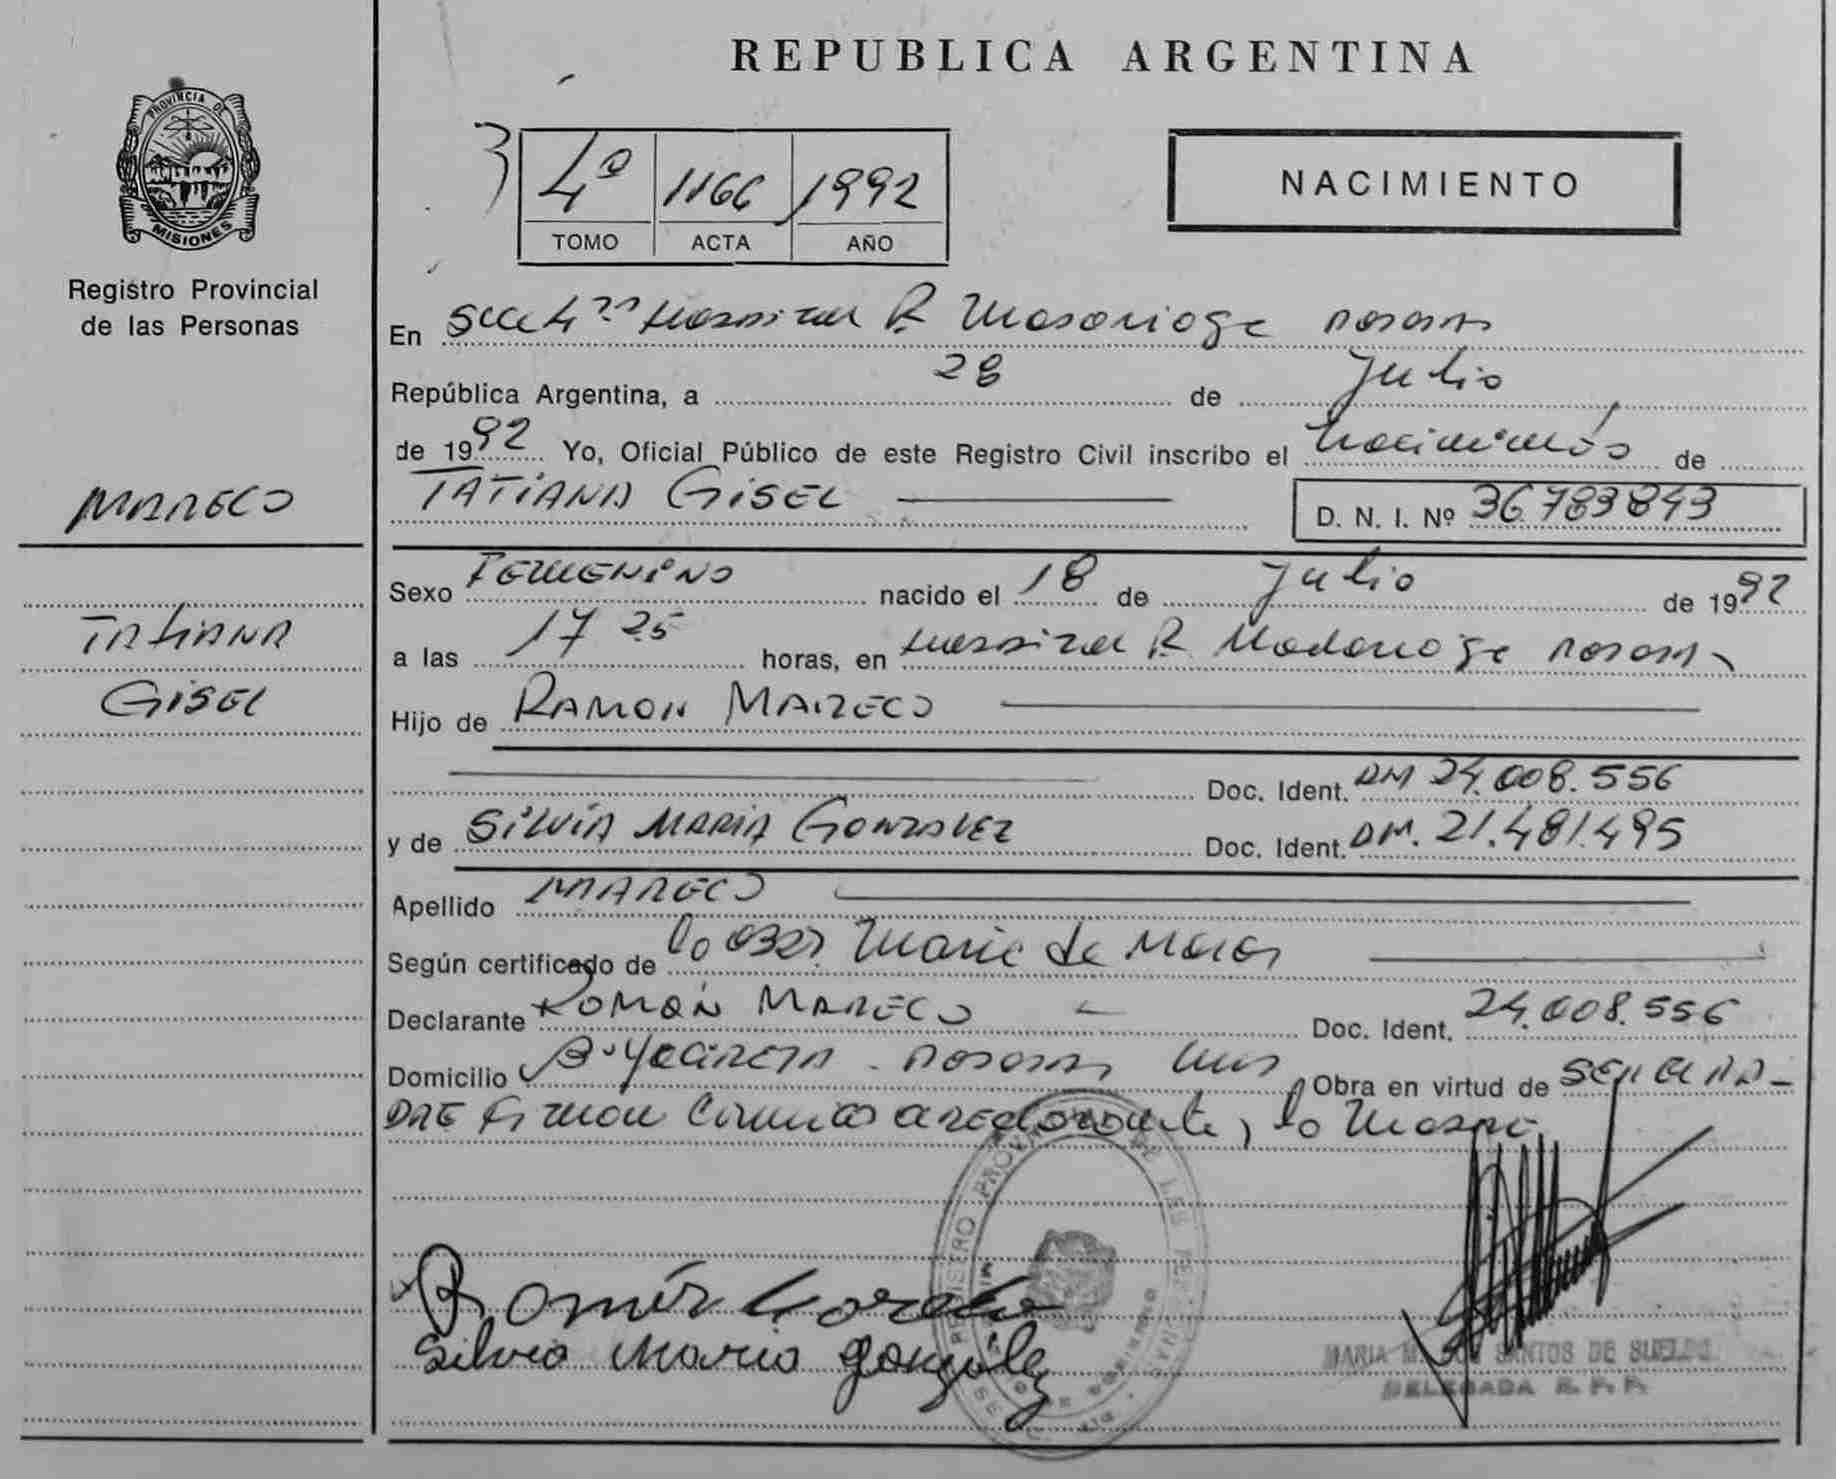 REPUBLICA ARGENTINA
PROVINCIA DE
MISIONES
Registro Provincial
de las Personas
4º 1166 1992
TOMO ACTA AÑO
NACIMIENTO
En Secc 4ª Hospital R. Madariaga Posadas
República Argentina, a 28 de Julio
de 1992 Yo, Oficial Público de este Registro Civil inscribo el nacimiento de
TATIANA GISEL D. N. I. Nº 36.783.843
MARECO
TATIANA
GISEL
Sexo FEMENINO nacido el 18 de Julio de 1992
a las 17 25 horas, en Hospital R. Madariaga Posadas
Hijo de RAMON MARECO
Doc. Ident. DM 24.008.556
y de SILVIA MARIA GONZALEZ Doc. Ident. DM. 21.481.495
Apellido MARECO
Según certificado de Maria de
Declarante ROMAN MARECO Doc. Ident. 24.008.556
Domicilio Bº Yacireta - Posadas Mnes Obra en virtud de SER EL PA-
DRE Firman el declarante, la
Silvia Maria gonzález
MARIA M. DOS SANTOS DE SUELDO
DELEGADA R. P. P.